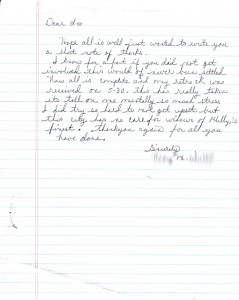 Dear Lee
Hope all is well just wanted to write you
a short note of thanks.
I know for a fact if you did not get
involved this would of never been settled
Thus all is complete and my retro ck was
received on 5-30. this has really taken
its toll on me mentally so much stress
I did try so hard to not get upset but
this city has no care for widows of Philly's
finest. Thankyou again for all you
have done.
Sincerely